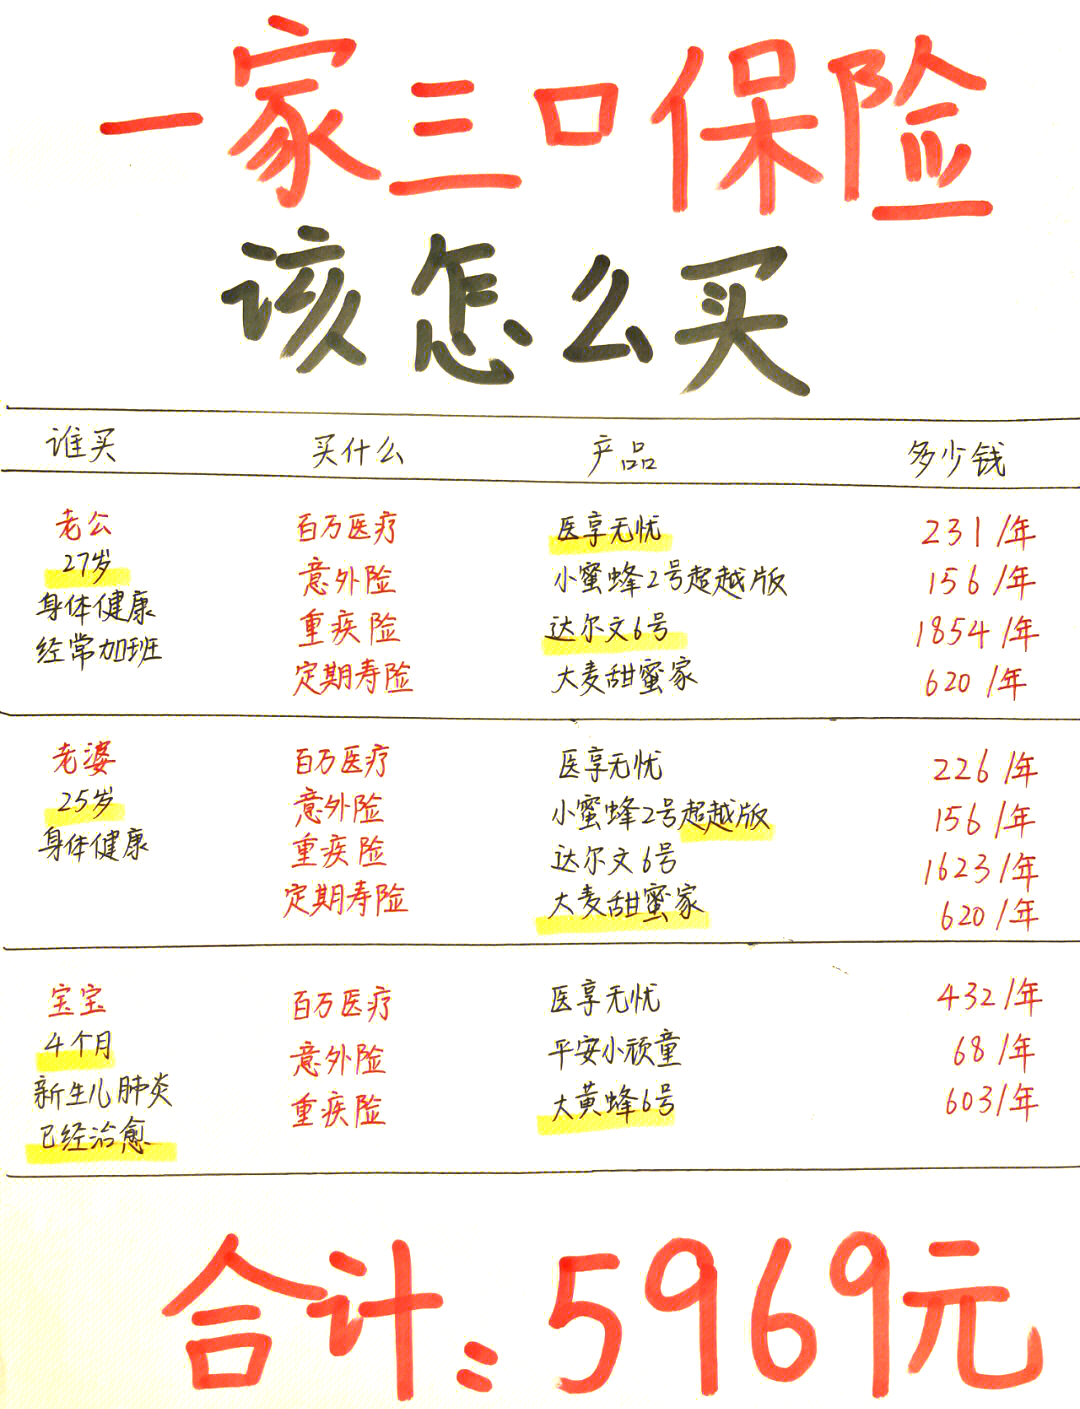 一家三口保险
该怎么买
谁买 买什么 产品 多少钱
老公 百万医疗 医享无忧 231/年
27岁 意外险 小蜜蜂2号超越版 156/年
身体健康 重疾险 达尔文6号 1854/年
经常加班 定期寿险 大麦甜蜜家 620/年
老婆 百万医疗 医享无忧 226/年
25岁 意外险 小蜜蜂2号超越版 156/年
身体健康 重疾险 达尔文6号 1623/年
定期寿险 大麦甜蜜家 620/年
宝宝 百万医疗 医享无忧 432/年
4个月 意外险 平安小顽童 68/年
新生儿肺炎 重疾险 大黄蜂6号 603/年
已经治愈
合计:5969元